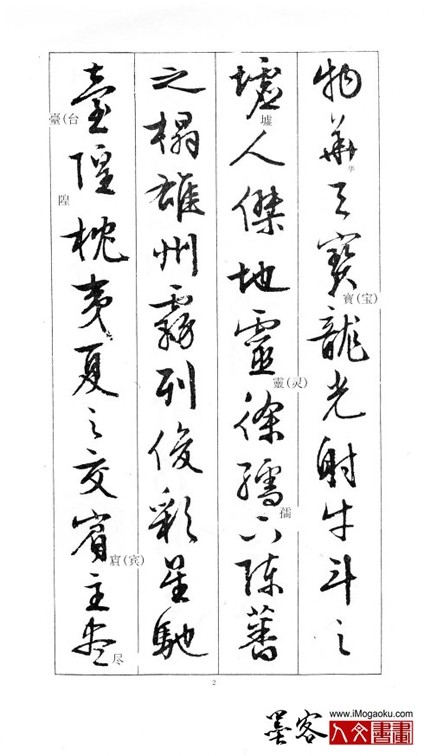 物華天寶龍光射牛斗之
华
寶(宝)
墟人傑地靈徐孺下陳蕃
墟
靈(灵)
儒
之榻雄州霧列俊彩星馳
臺隍枕夷夏之交賓主盡
臺(台
隍
賔(宾)
尽
2
墨客
www.iMogaoku.com
人文書畫